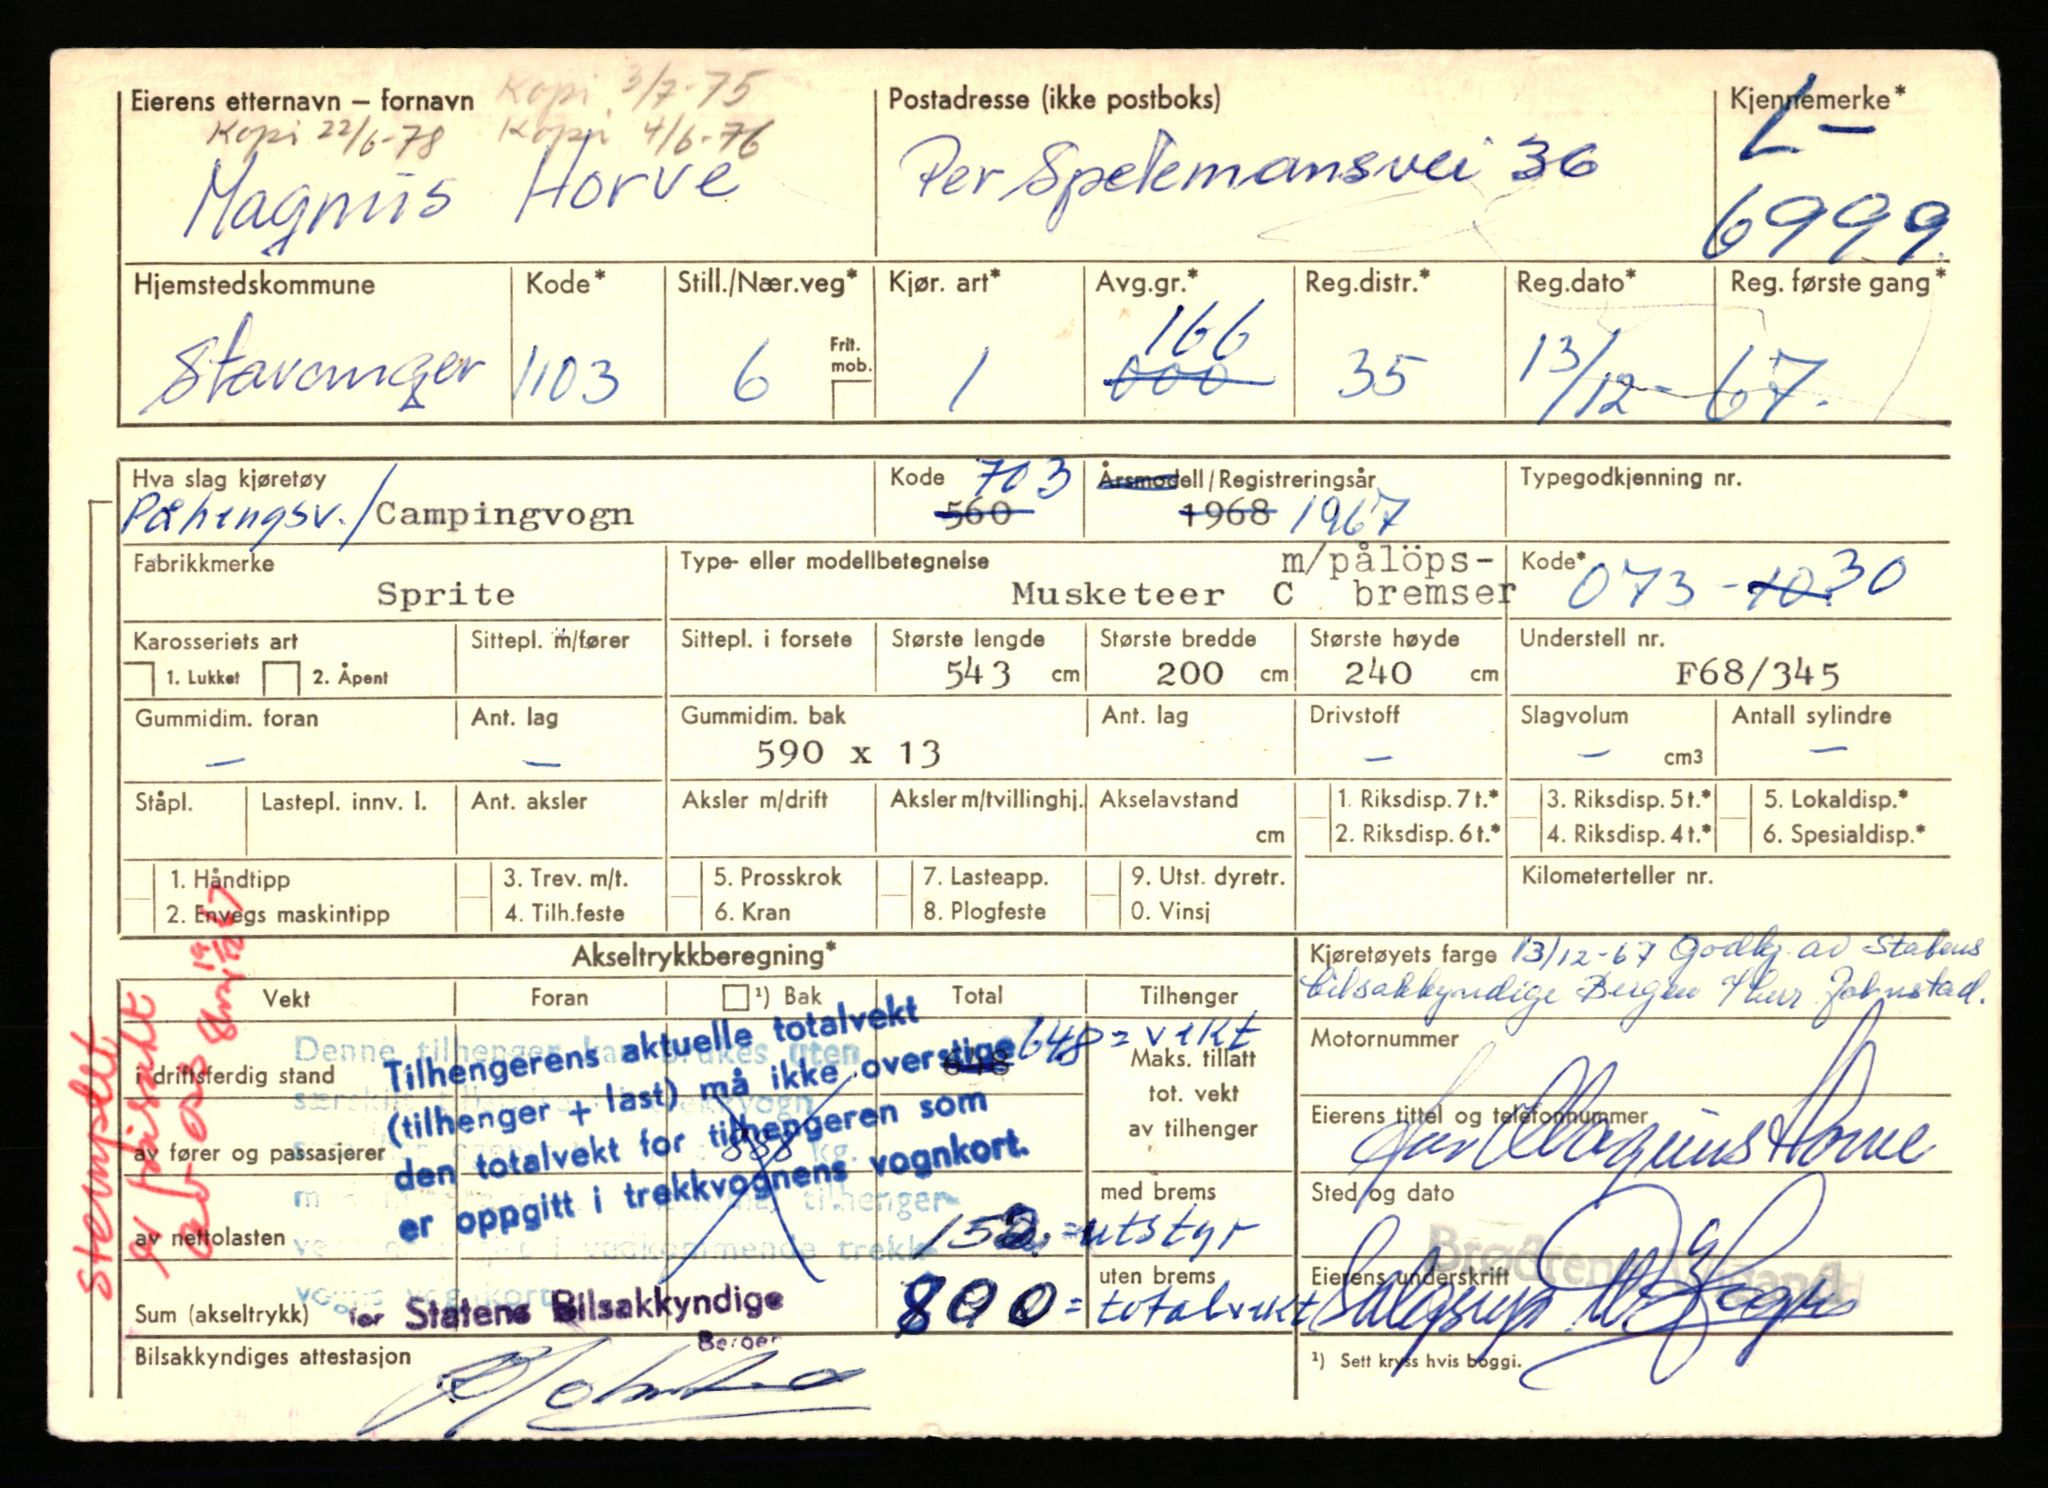 Kopi 3/7-75
Eierens etternavn – fornavn
Kopi 22/6-78 Kopi 4/6-76
Magnus Horve
Postadresse (ikke postboks)
Per Spelemansvei 36
Kjennemerke*
L-
6999.
Hjemstedskommune Kode* Still./Nær.veg* Kjør. art* Avg.gr.* Reg.distr.* Reg.dato* Reg. første gang*
Frit. mob.
166
Stavanger 1103 6 1 000 35 13/12-67.
Hva slag kjøretøy Kode 703 Årsmodell/Registreringsår Typegodkjenning nr.
Påhengsv./Campingvogn 560 1968 1967
Fabrikkmerke Type- eller modellbetegnelse m/pålöps- Kode*
Sprite Musketeer C bremser 073-10.30
Karosseriets art Sittepl. m/fører Sittepl. i forsete Største lengde Største bredde Største høyde Understell nr.
1. Lukket 2. Åpent 543 cm 200 cm 240 cm F68/345
Gummidim. foran Ant. lag Gummidim. bak Ant. lag Drivstoff Slagvolum Antall sylindre
– – 590 x 13 – – cm3 –
Ståpl. Lastepl. innv. l. Ant. aksler Aksler m/drift Aksler m/tvillinghj. Akselavstand 1. Riksdisp. 7 t.* 3. Riksdisp. 5 t.* 5. Lokaldisp.*
cm 2. Riksdisp. 6 t.* 4. Riksdisp. 4 t.* 6. Spesialdisp.*
1. Håndtipp 3. Trev. m/t. 5. Prosskrok 7. Lasteapp. 9. Utst. dyretr. Kilometerteller nr.
2. Envegs maskintipp 4. Tilh.feste 6. Kran 8. Plogfeste 0. Vinsj
Akseltrykkberegning*
Kjøretøyets farge 13/12-67 Godkj. av Statens
bilsakkyndige Bergen v/herr Johnstad.
Vekt Foran 1) Bak Total Tilhenger
Motornummer
i driftsferdig stand 648 648 = vekt
Maks. tillatt
tot. vekt
av tilhenger
Tilhengerens aktuelle totalvekt
(tilhenger + last) må ikke overstige
den totalvekt for tilhengeren som
er oppgitt i trekkvognens vognkort.
Denne tilhenger kan brukes uten
Eierens tittel og telefonnummer
for Magnus Horve
av fører og passasjerer 888 kg.
Sted og dato
med brems
av nettolasten 152 = utstyr
Eierens underskrift
uten brems
Sum (akseltrykk) 800 = totalvekt
for Statens Bilsakkyndige
Bergen
Bilsakkyndiges attestasjon
1) Sett kryss hvis boggi.
Brødrene
Stemplet